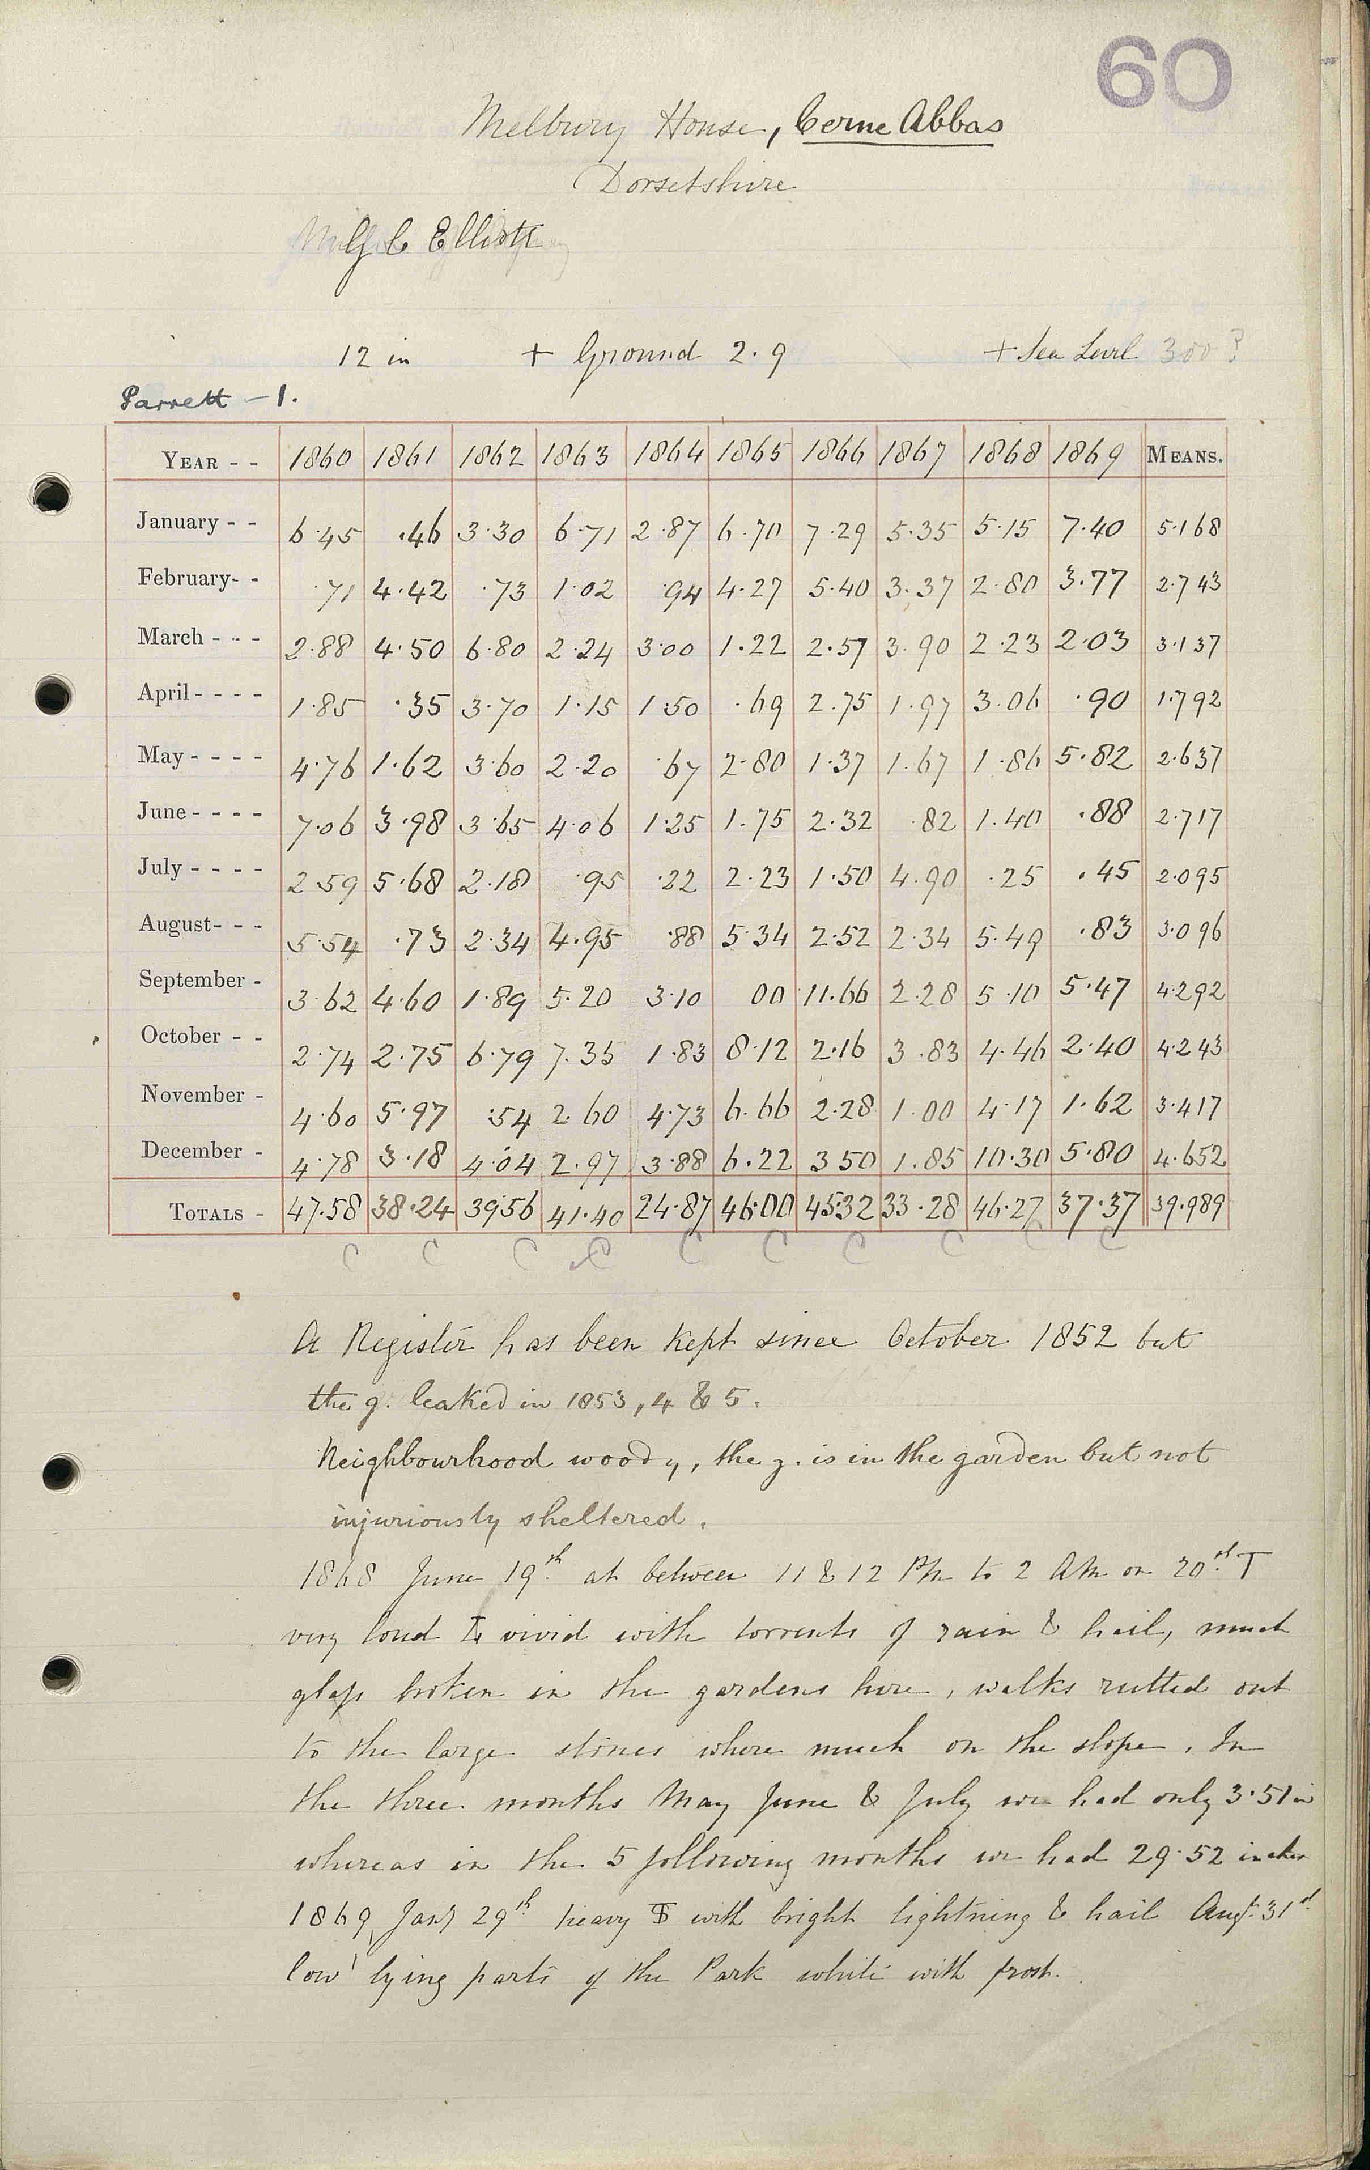 60
Melbury House, Cerne Abbas
Dorsetshire
G C Elliott
12 in + Ground 2.9 + Sea Level 300?
Parrett - 1.
YEAR - - 1860 1861 1862 1863 1864 1865 1866 1867 1868 1869 MEANS.
January - - 6.45 .46 3.30 6.71 2.87 6.70 7.29 5.35 5.15 7.40 5.168
February- - .71 4.42 .73 1.02 .94 4.27 5.40 3.37 2.80 3.77 2.743
March - - - 2.88 4.50 6.80 2.24 3.00 1.22 2.57 3.90 2.23 2.03 3.137
April - - - - 1.85 .35 3.70 1.15 1.50 .69 2.75 1.97 3.06 .90 1.792
May - - - - 4.76 1.62 3.60 2.20 .67 2.80 1.37 1.67 1.86 5.82 2.637
June - - - - 7.06 3.98 3.65 4.06 1.25 1.75 2.32 .82 1.40 .88 2.717
July - - - - 2.59 5.68 2.18 .95 .22 2.23 1.50 4.90 .25 .45 2.095
August- - - 5.54 .73 2.34 4.95 .88 5.34 2.52 2.34 5.49 .83 3.096
September - 3.62 4.60 1.89 5.20 3.10 00 11.66 2.28 5.10 5.47 4.292
October - - 2.74 2.75 6.79 7.35 1.83 8.12 2.16 3.83 4.46 2.40 4.243
November - 4.60 5.97 .54 2.60 4.73 6.66 2.28 1.00 4.17 1.62 3.417
December - 4.78 3.18 4.04 2.97 3.88 6.22 3.50 1.85 10.30 5.80 4.652
TOTALS - 47.58 38.24 39.56 41.40 24.87 46.00 45.32 33.28 46.27 37.37 39.989
C C C C C C C C C C
A Register has been kept since October 1852 but
the g. leaked in 1853, 4 & 5.
Neighbourhood woody, the g. is in the garden but not
injuriously sheltered.
1868 June 19th at between 11 & 12 PM to 2 AM on 20th T
very loud & vivid with torrents of rain & hail, much
glass broken in the gardens here, walks rutted out
to the large stones where much on the slope. In
the three months May June & July we had only 3.51 in
whereas in the 5 following months we had 29.52 inches
1869 Jany 29th heavy T with bright lightning & hail Augt. 31st
low lying parts of the Park white with frost.